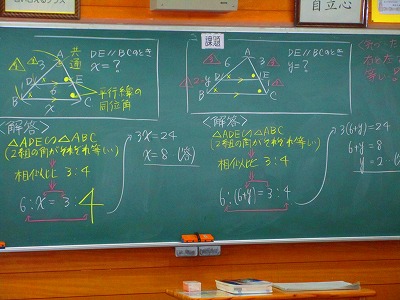 自立心
DE//BCのとき
x=?
A
共通
3
1
D
E
6
B
x
C
平行線の
同位角
<解答>
△ADE∽△ABC
(2組の角がそれぞれ等しい)
相似比 3:4
6:x=3:4
3x=24
x=8 (答)
課題
DE//BCのとき
y=?
A
6
3
D
E
y
1
B
C
<解答>
△ADE∽△ABC
(2組の角がそれぞれ等しい)
相似比 3:4
6:(6+y)=3:4
3(6+y)=24
6+y=8
y=2